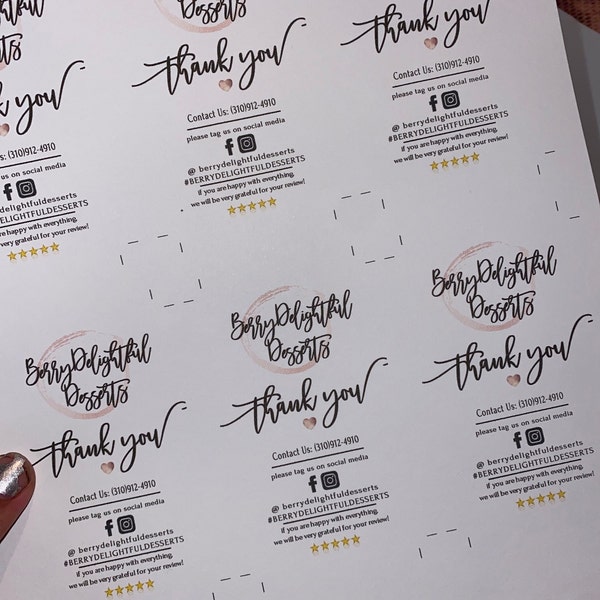 Desserts
thank you
Contact Us: (310)912-4910
please tag us on social media
@ berrydelightfuldesserts
#BERRYDELIGHTFULDESSERTS
if you are happy with everything,
we will be very grateful for your review!
thank you
Contact Us: (310)912-4910
please tag us on social media
@ berrydelightfuldesserts
#BERRYDELIGHTFULDESSERTS
if you are happy with everything,
we will be very grateful for your review!
you
Us: (310)912-4910
us on social media
berrydelightfuldesserts
are happy with everything,
very grateful for your review!
BerryDelightful
Desserts
thank you
Contact Us: (310)912-4910
please tag us on social media
@ berrydelightfuldesserts
#BERRYDELIGHTFULDESSERTS
if you are happy with everything,
we will be very grateful for your review!
BerryDelightful
Desserts
thank you
Contact Us: (310)912-4910
please tag us on social media
@ berrydelightfuldesserts
#BERRYDELIGHTFULDESSERTS
if you are happy with everything,
we will be very grateful for your review!
BerryDelightful
Desserts
thank you
Contact Us: (310)912-4910
please tag us on social media
@ berrydelightfuldesserts
#BERRYDELIGHTFULDESSERTS
if you are happy with everything,
we will be very grateful for your review!